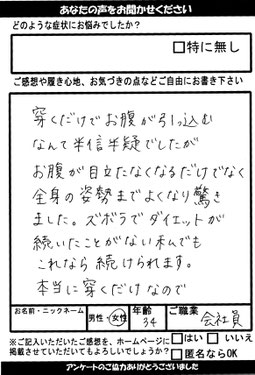 あなたの声をお聞かせください
どのような症状にお悩みでしたか?
□特に無し
ご感想や履き心地、お気づきの点などご自由にお書き下さい
穿くだけでお腹が引っ込む
なんて半信半疑でしたが
お腹が目立たなくなるだけでなく
全身の姿勢までよくなり驚き
ました。ズボラでダイエットが
続いたことがない私でも
これなら続けられます。
本当に穿くだけなので
お名前・ニックネーム
男性・女性
年齢
34
ご職業
会社員
※ご記入いただいたご感想を、ホームページに
掲載させていただいてもよろしいでしょうか?
□はい □いいえ
□匿名ならOK
アンケートのご協力ありがとうございました